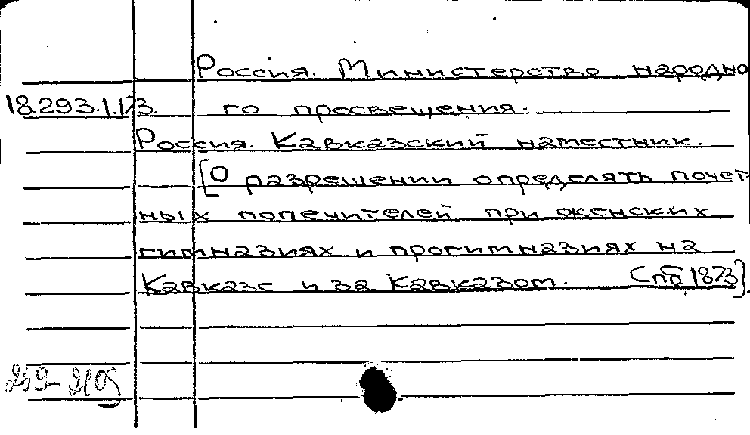 Россия. Министерство народно
18.293.1.173. го просвещения.
Россия. Кавказский наместник.
[О разрешении определять почет-
ных попечителей при женских
гимназиях и прогимназиях на
Кавказе и за Кавказом. Спб, 1873].